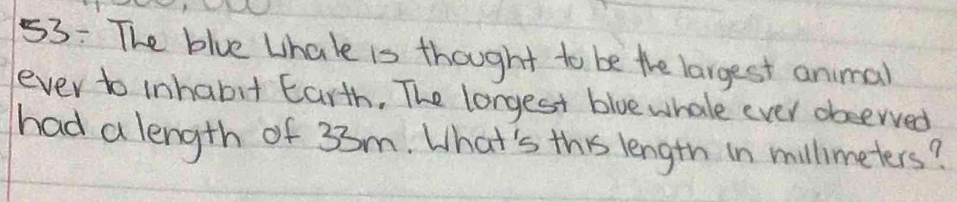 53- The blue whale is thought to be the largest animal
ever to inhabit Earth. The longest blue whale ever observed
had a length of 33m. What's this length in millimeters?